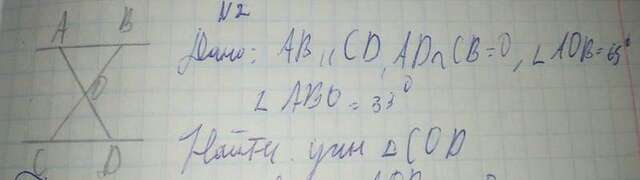 N2
A B
Дано: AB || CD, AD∩CB=O, ∠AOB=65°
∠ABO=33°
O
Найти углы △COD
C D